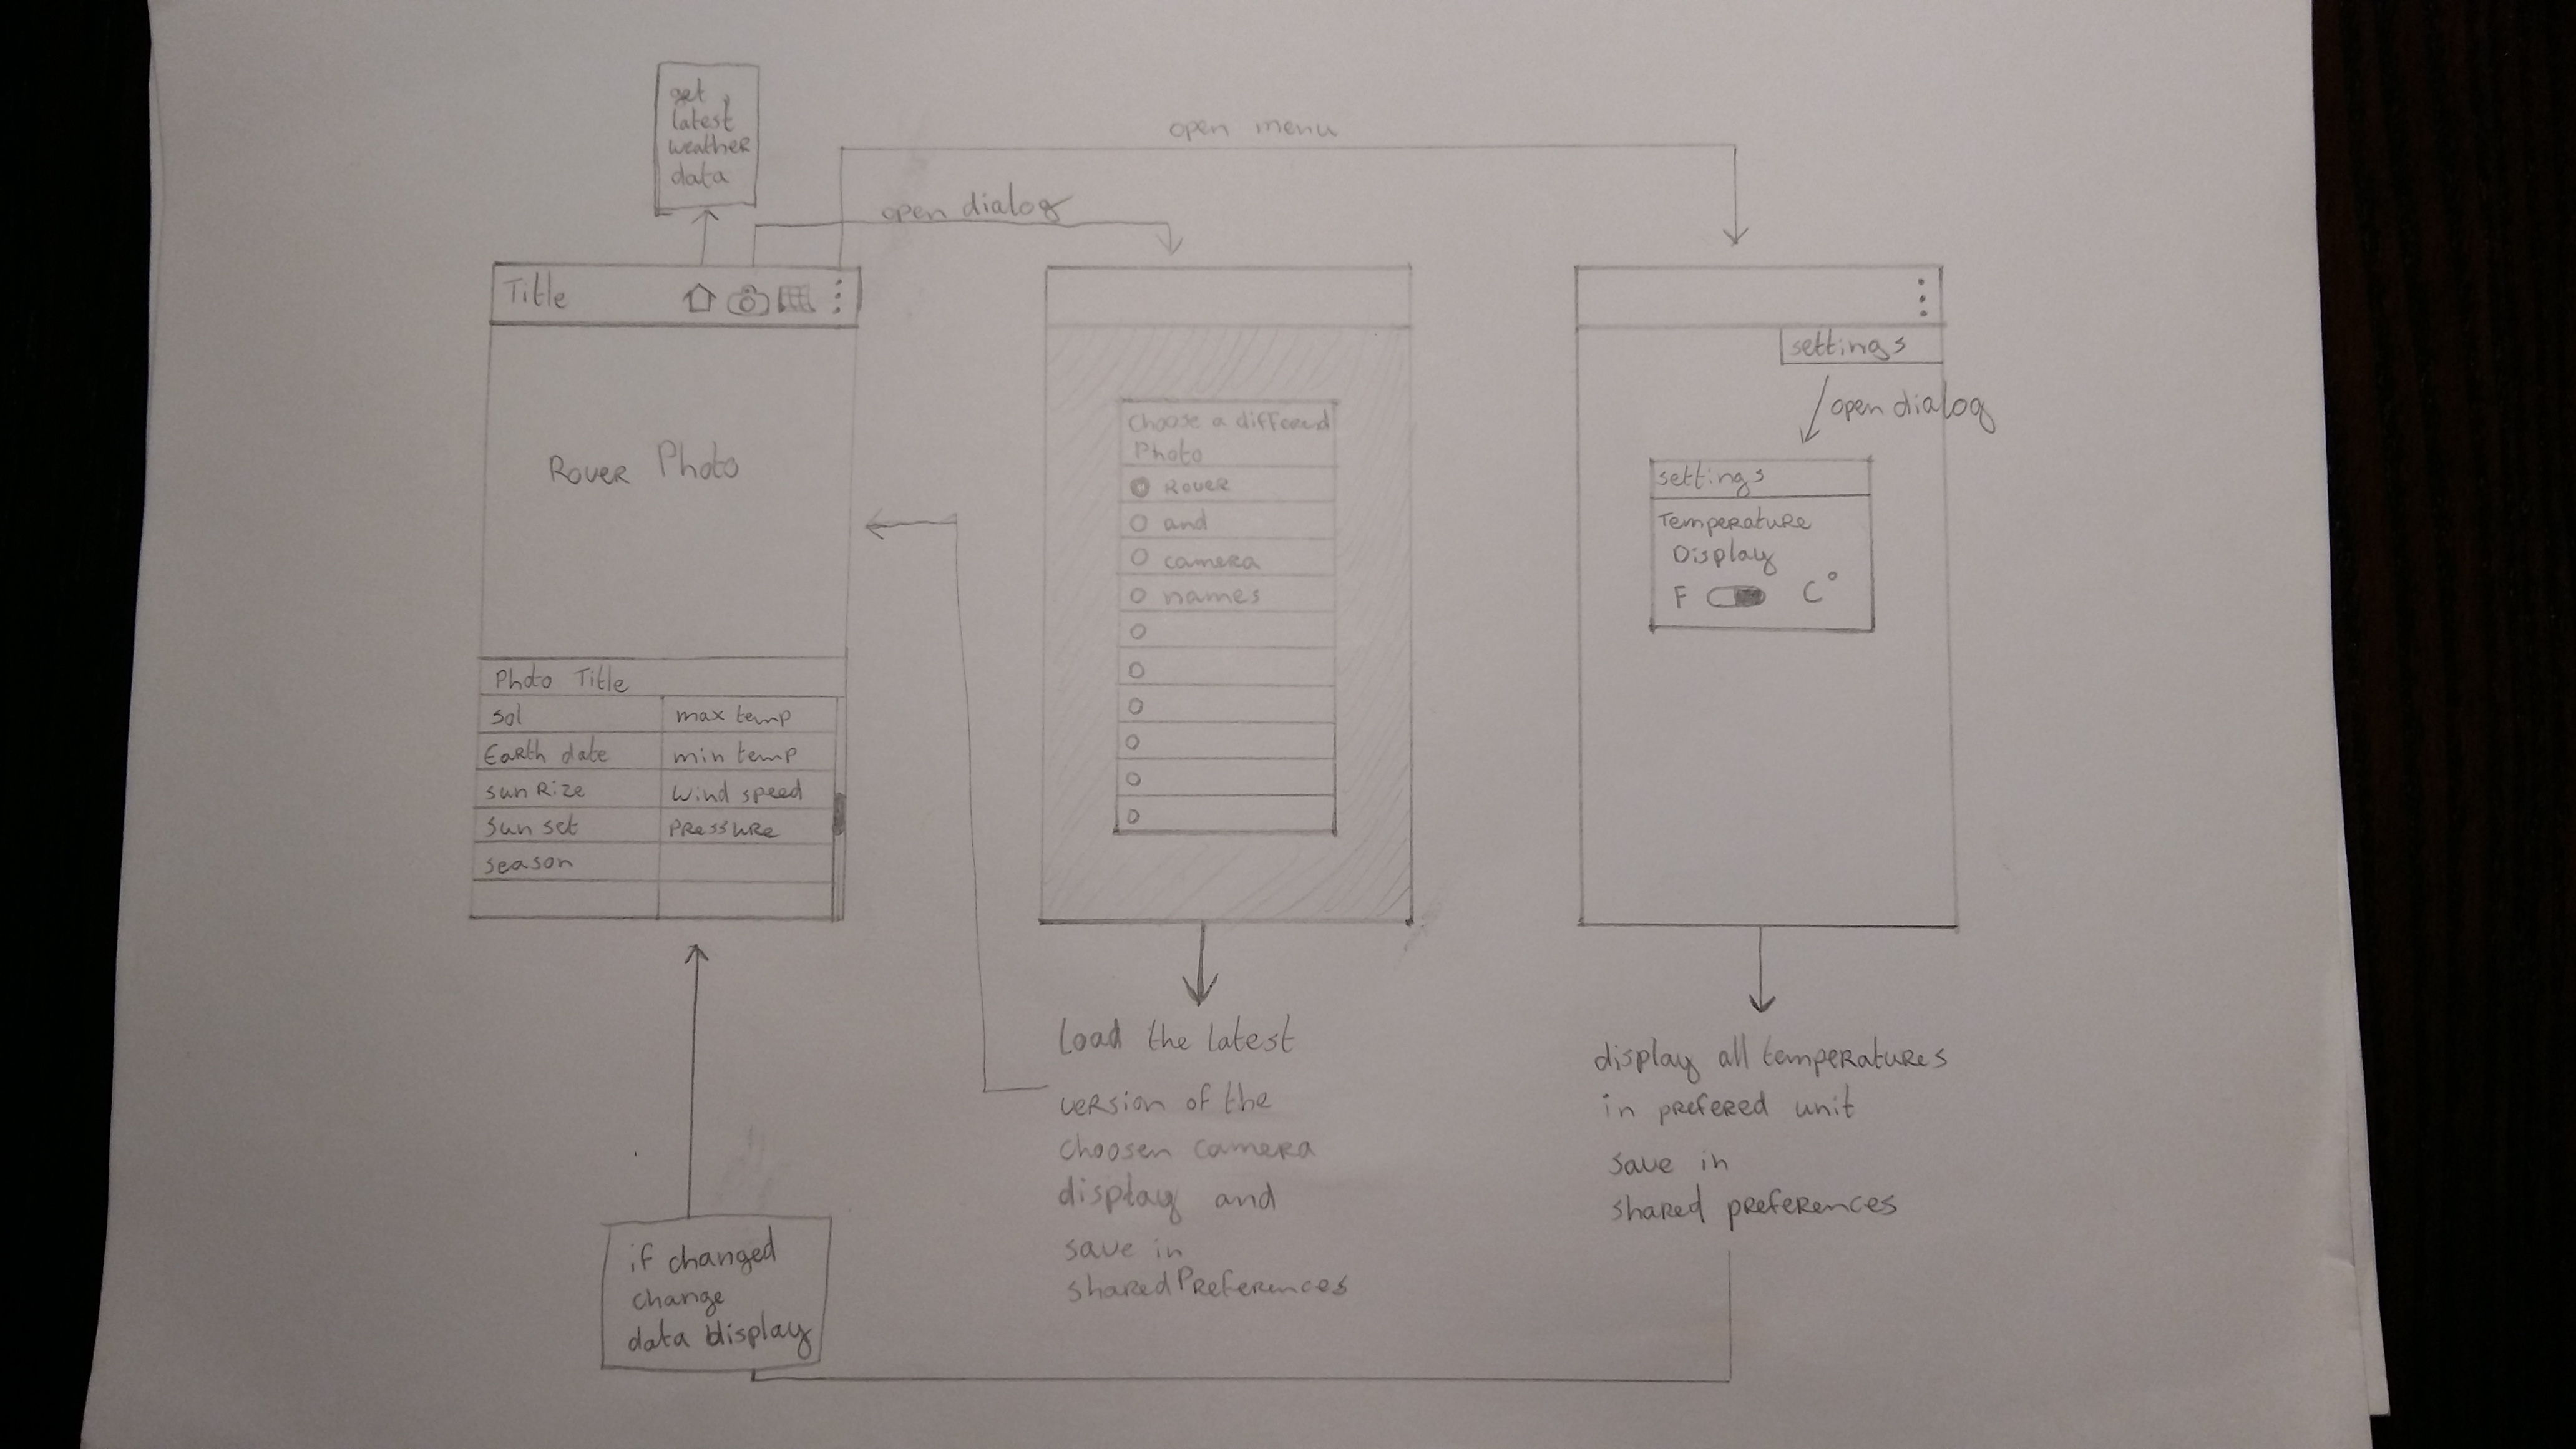 get
latest
weather
data
open menu
open dialog
Title
Rover Photo
Photo Title
sol
max temp
Earth date
min temp
sun Rize
Wind speed
Sun set
Pressure
season
if changed
change
data display
Choose a differend
Photo
Rover
and
camera
names
load the latest
version of the
choosen camera
display and
save in
sharedPreferences
settings
open dialog
settings
Temperature
Display
F C°
display all temperatures
in prefered unit
save in
shared preferences